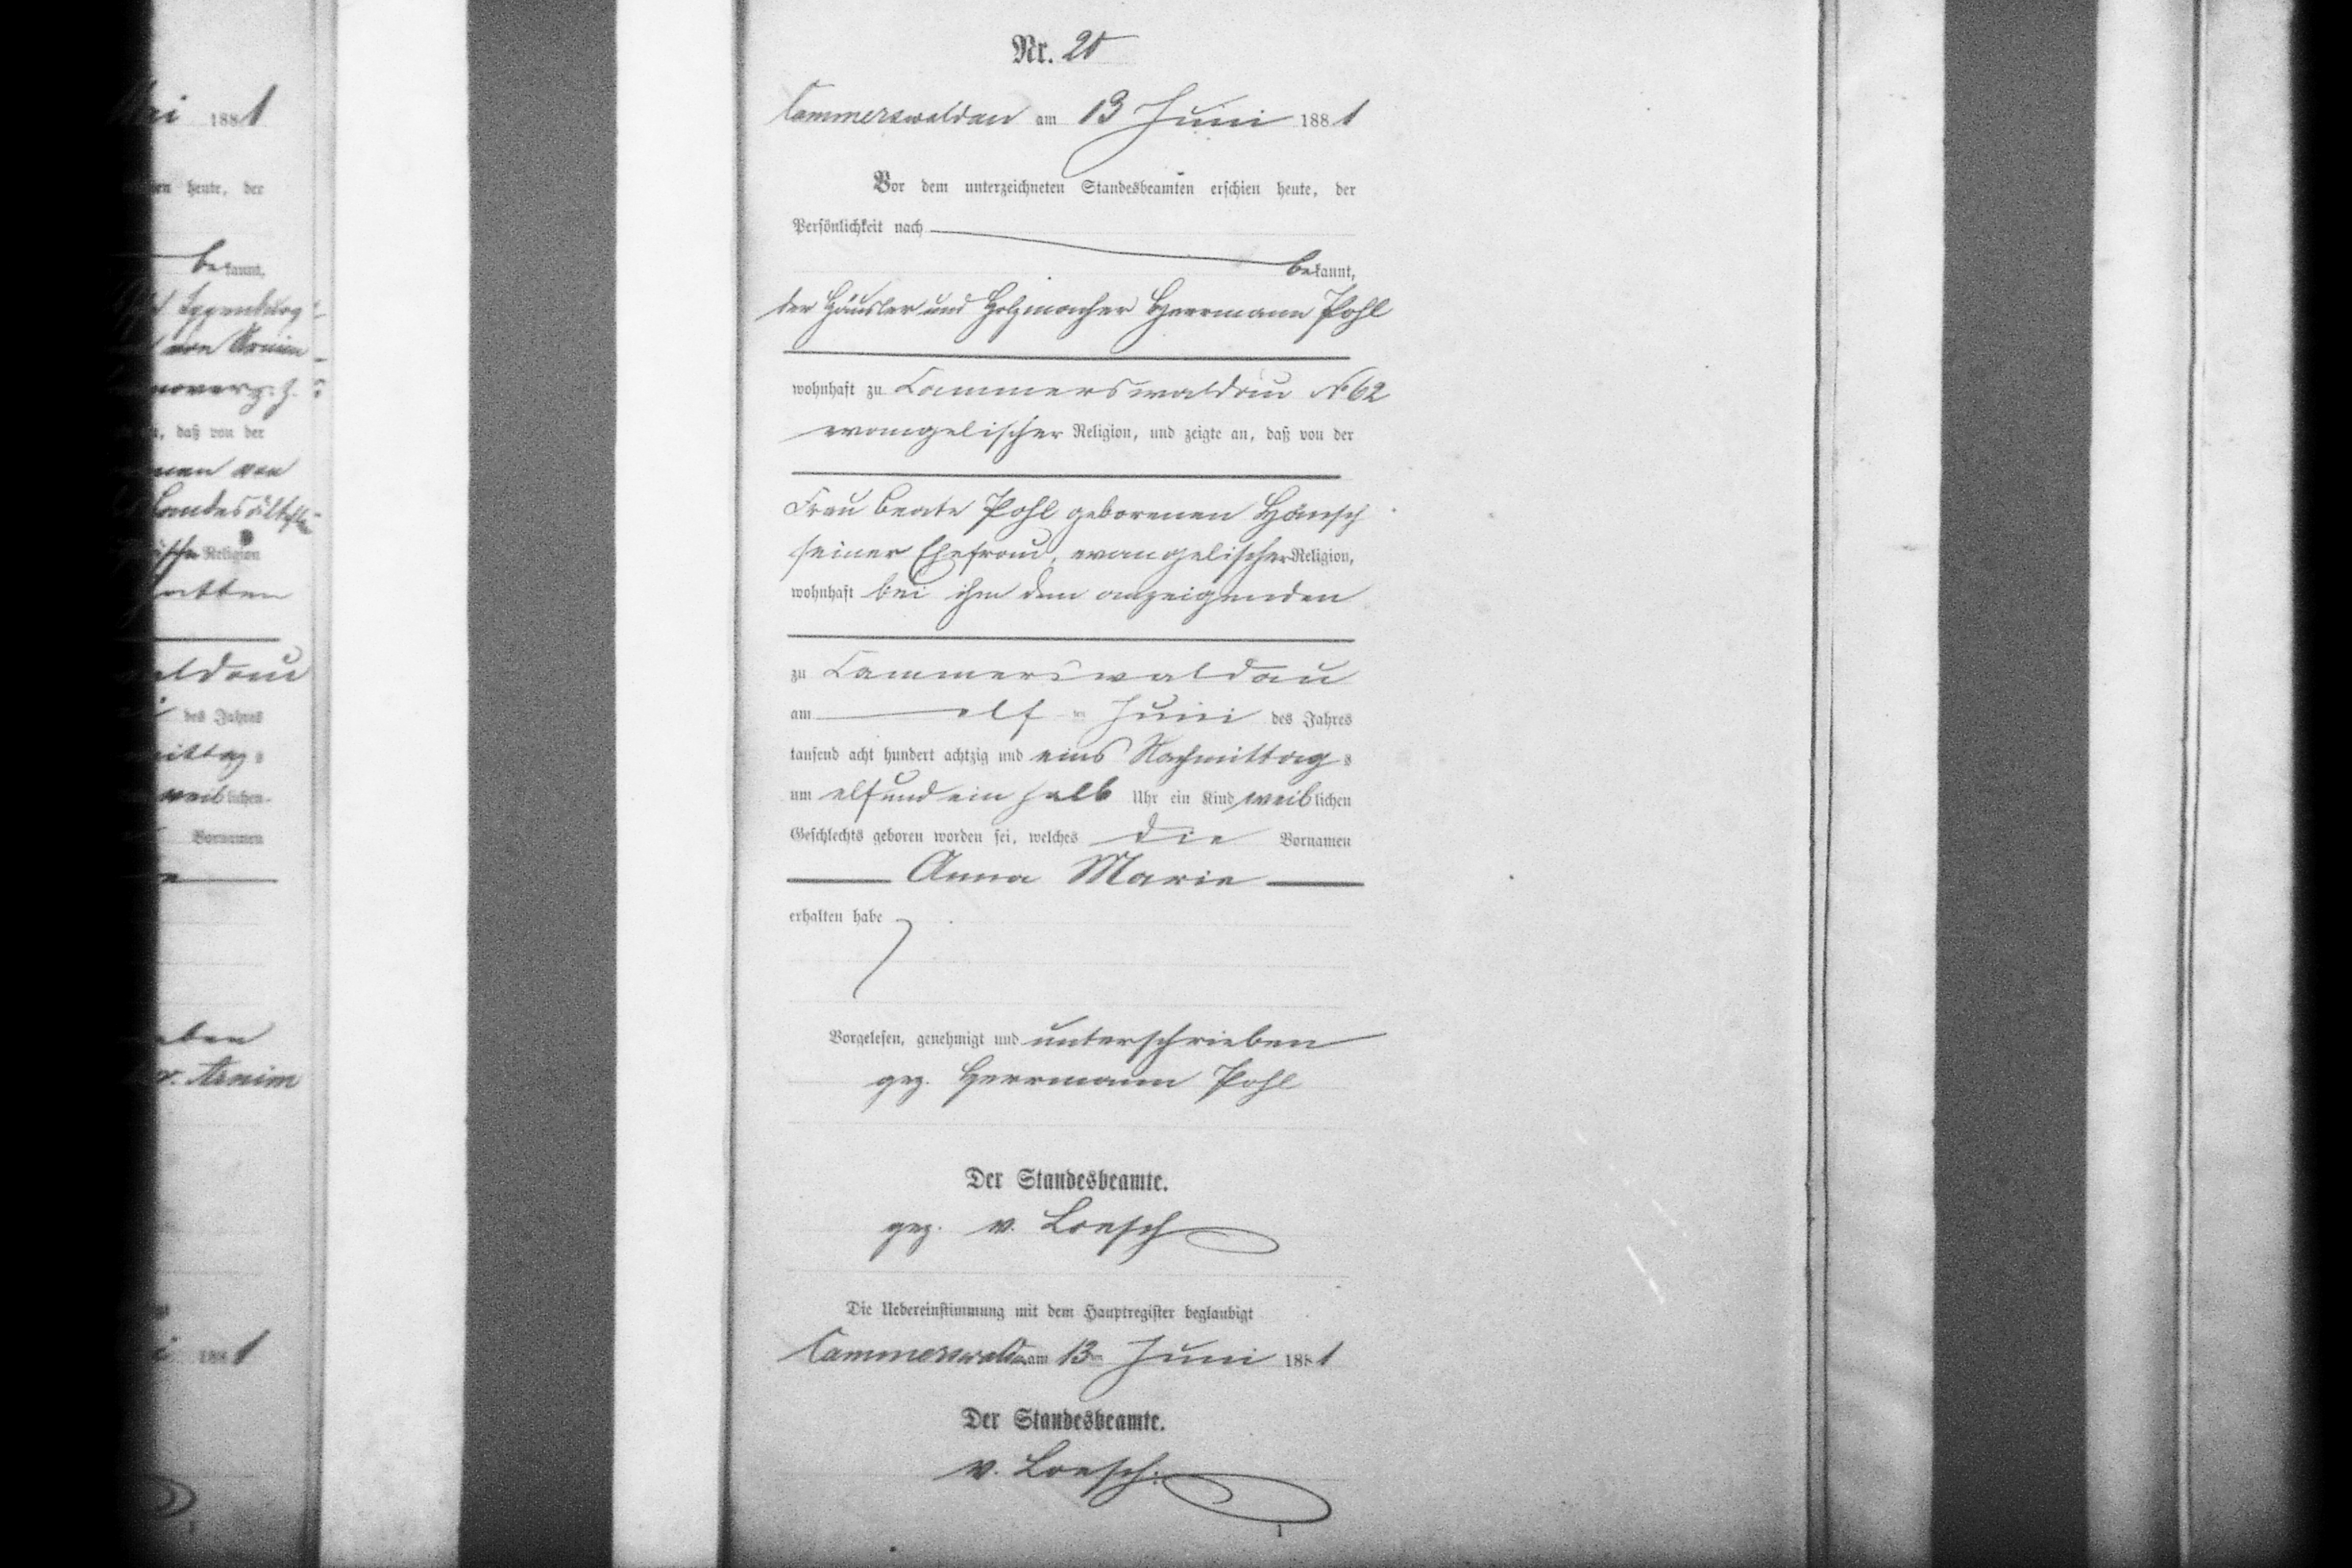 188 1
heute, der
bekannt,
von Arnim
daß von der
Religion
hatten
des Jahres
weiblichen
Vornamen
v. Arnim
188 1
Nr. 20
Cammerswaldau am 13 Juni 188 1
Vor dem unterzeichneten Standesbeamten erschien heute, der
Persönlichkeit nach
bekannt,
der Häusler und Holzmacher Herrmann Pohl
wohnhaft zu Cammerswaldau No 62
evangelischer Religion, und zeigte an, daß von der
Frau Beate Pohl geborenen Hänsch
seiner Ehefrau, evangelischer Religion,
wohnhaft bei ihm dem anzeigenden
zu Cammerswaldau
am elf ten Juni des Jahres
tausend acht hundert achtzig und eins Nachmittag s
um elf und ein halb Uhr ein Kind weiblichen
Geschlechts geboren worden sei, welches die Vornamen
Anna Marie
erhalten habe
Vorgelesen, genehmigt und unterschrieben
gez. Herrmann Pohl
Der Standesbeamte.
gez. v. Loesch
Die Uebereinstimmung mit dem Hauptregister beglaubigt
Cammerswaldau am 13ten Juni 188 1
Der Standesbeamte.
v. Loesch.
1